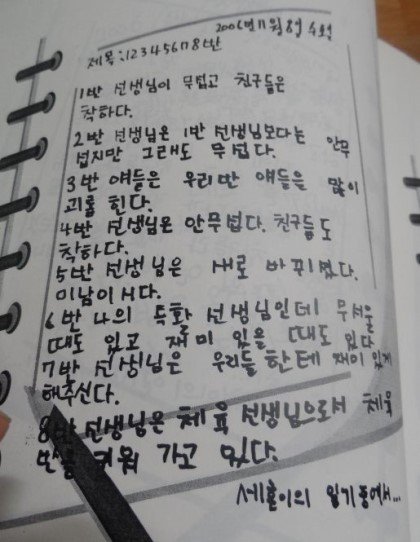 2006년 11월 8일 수요일
제목:12345678반
1반 선생님이 무섭고 친구들은
착하다.
2반 선생님은 1반 선생님보다는 안무
섭지만 그래도 무섭다.
3반 얘들은 우리반 얘들은 많이
괴롭 힌다.
4반 선생님은 안무섭다. 친구들도
착하다.
5반 선생님은 새로 바뀌셨다.
미남이시다.
6반 나의 독화 선생님인데 무서울
때도 있고 재미 있을 때도 있다
7반 선생님은 우리들 한테 재미있게
해주신다.
8반 선생님은 체육 선생님으로서 체육
반을 키워 가고 있다.
세훈이의 일기중에서...